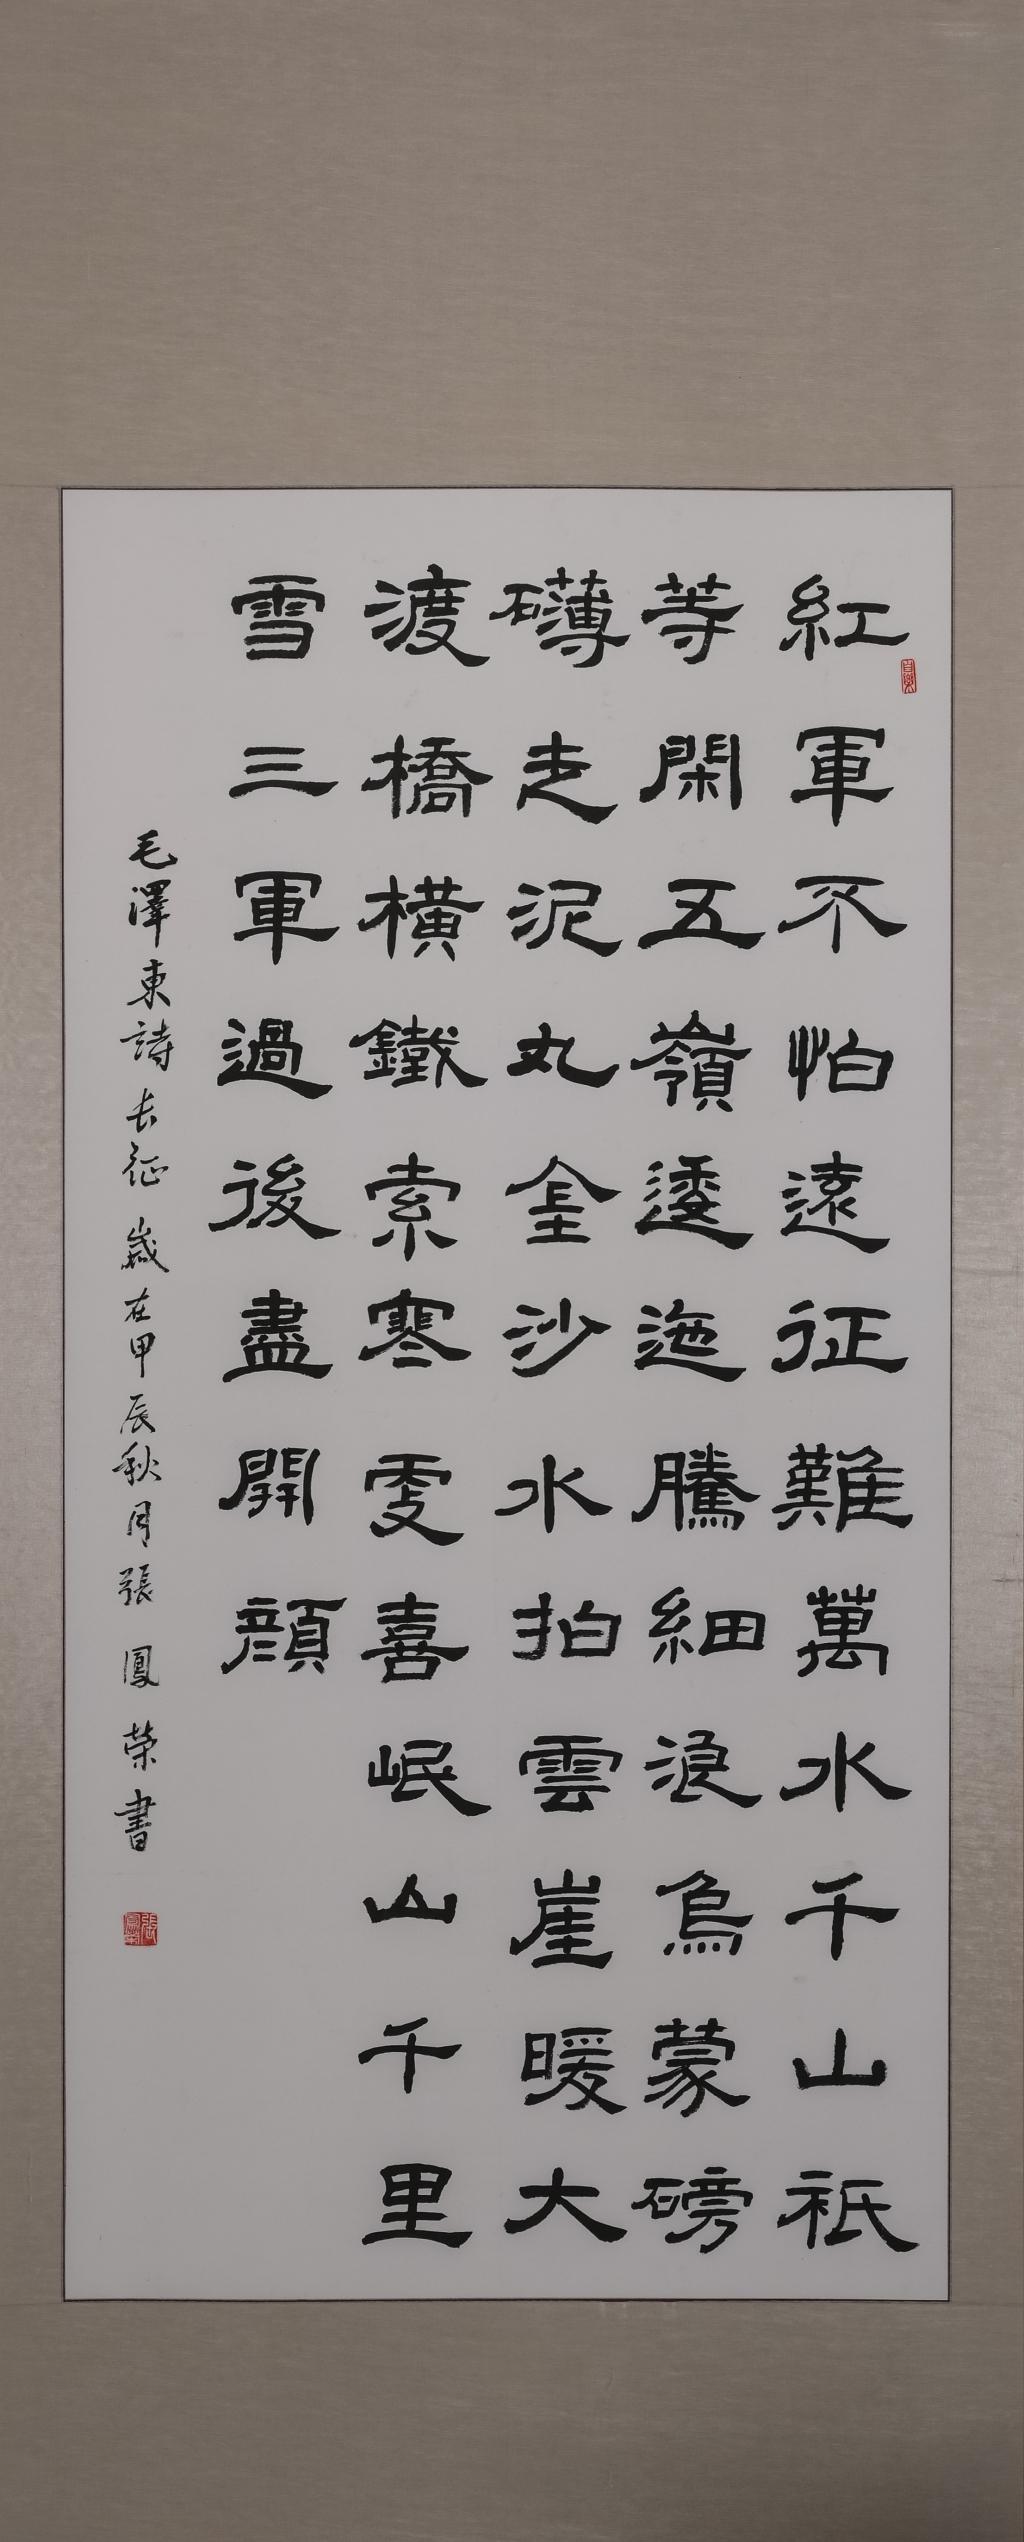 紅軍不怕遠征難萬水千山祇
等閑五嶺逶迤騰細浪烏蒙磅
礴走泥丸金沙水拍雲崖暖大
渡橋橫鐵索寒更喜岷山千里
雪三軍過後盡開顏
毛澤東詩長征 歲在甲辰秋月張鳳榮書
張鳳榮